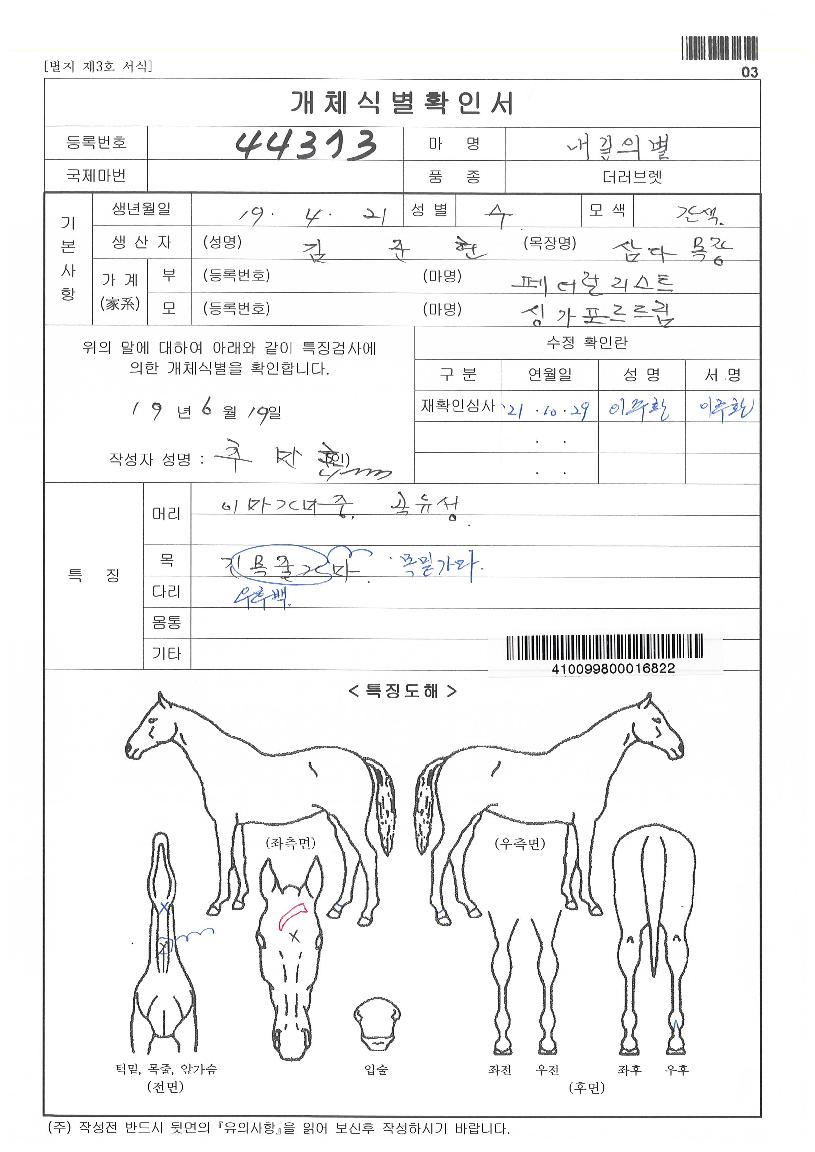 03
[별지 제3호 서식]
개체식별확인서
등록번호 44313 마 명 내곁의별
국제마번 품 종 더러브렛
기본사항
생년월일 19. 4. 21 성별 수 모색 갈색.
생산자 (성명) 김준현 (목장명) 삼다목장
가계(家系) 부 (등록번호) (마명) 페더랄리스트
모 (등록번호) (마명) 싱가포르드림
위의 말에 대하여 아래와 같이 특징검사에
의한 개체식별을 확인합니다.
19년 6월 19일
작성사 성명 : (인)
수정 확인란
구분 연월일 성명 서명
재확인심사 '21.10.29 이주환 이주환
. .
. .
특 징
머리
목 목밑가마.
다리 우후백.
몸통
기타
410099800016822
< 특징도해 >
(좌측면) (우측면)
턱밑, 목줄, 앞가슴 입술 좌전 우전 좌후 우후
(전면) (후면)
(주) 작성전 반드시 뒷면의 『유의사항』을 읽어 보신후 작성하시기 바랍니다.